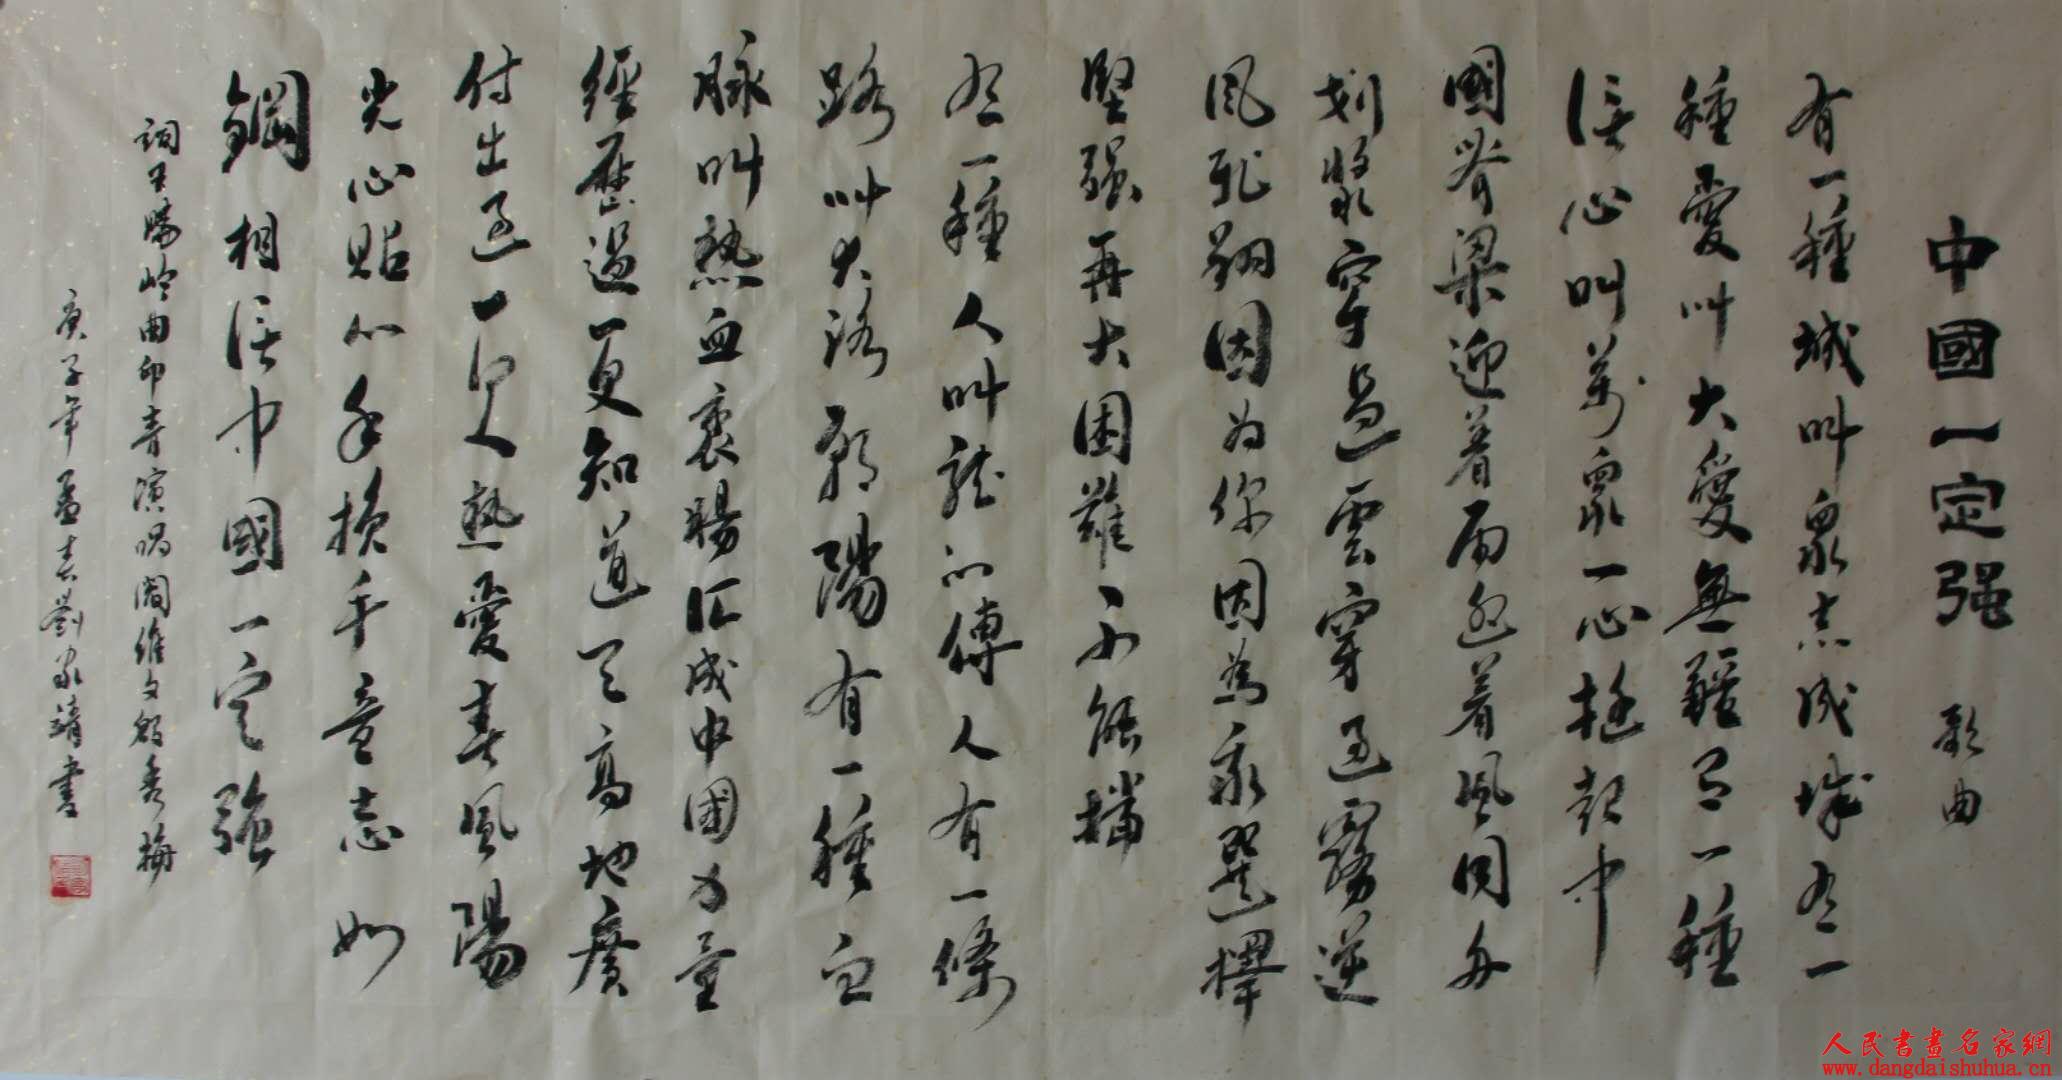 中國一定强 歌曲
有一種城叫衆志成城有一
種愛叫大愛無疆有一種
信心叫萬衆一心挺起中
國脊梁迎着雨迎着風同舟
划槳穿過雲穿過霧逆
風飛翔因为你因為我選擇
堅强再大困難不能擋
有一種人叫龍的傳人有一條
路叫大路朝陽有一種血
脉叫熱血衷腸汇成中國力量
經歷過更知道天高地廣
付出過更熱愛春風陽
光心貼心手挽手意志如
鋼相信中國一定强
詞王曉岭曲印青演唱閻維文殷秀梅
庚子年孟春劉家靖書
人民書畫名家網
www.dangdaishuhua.cn